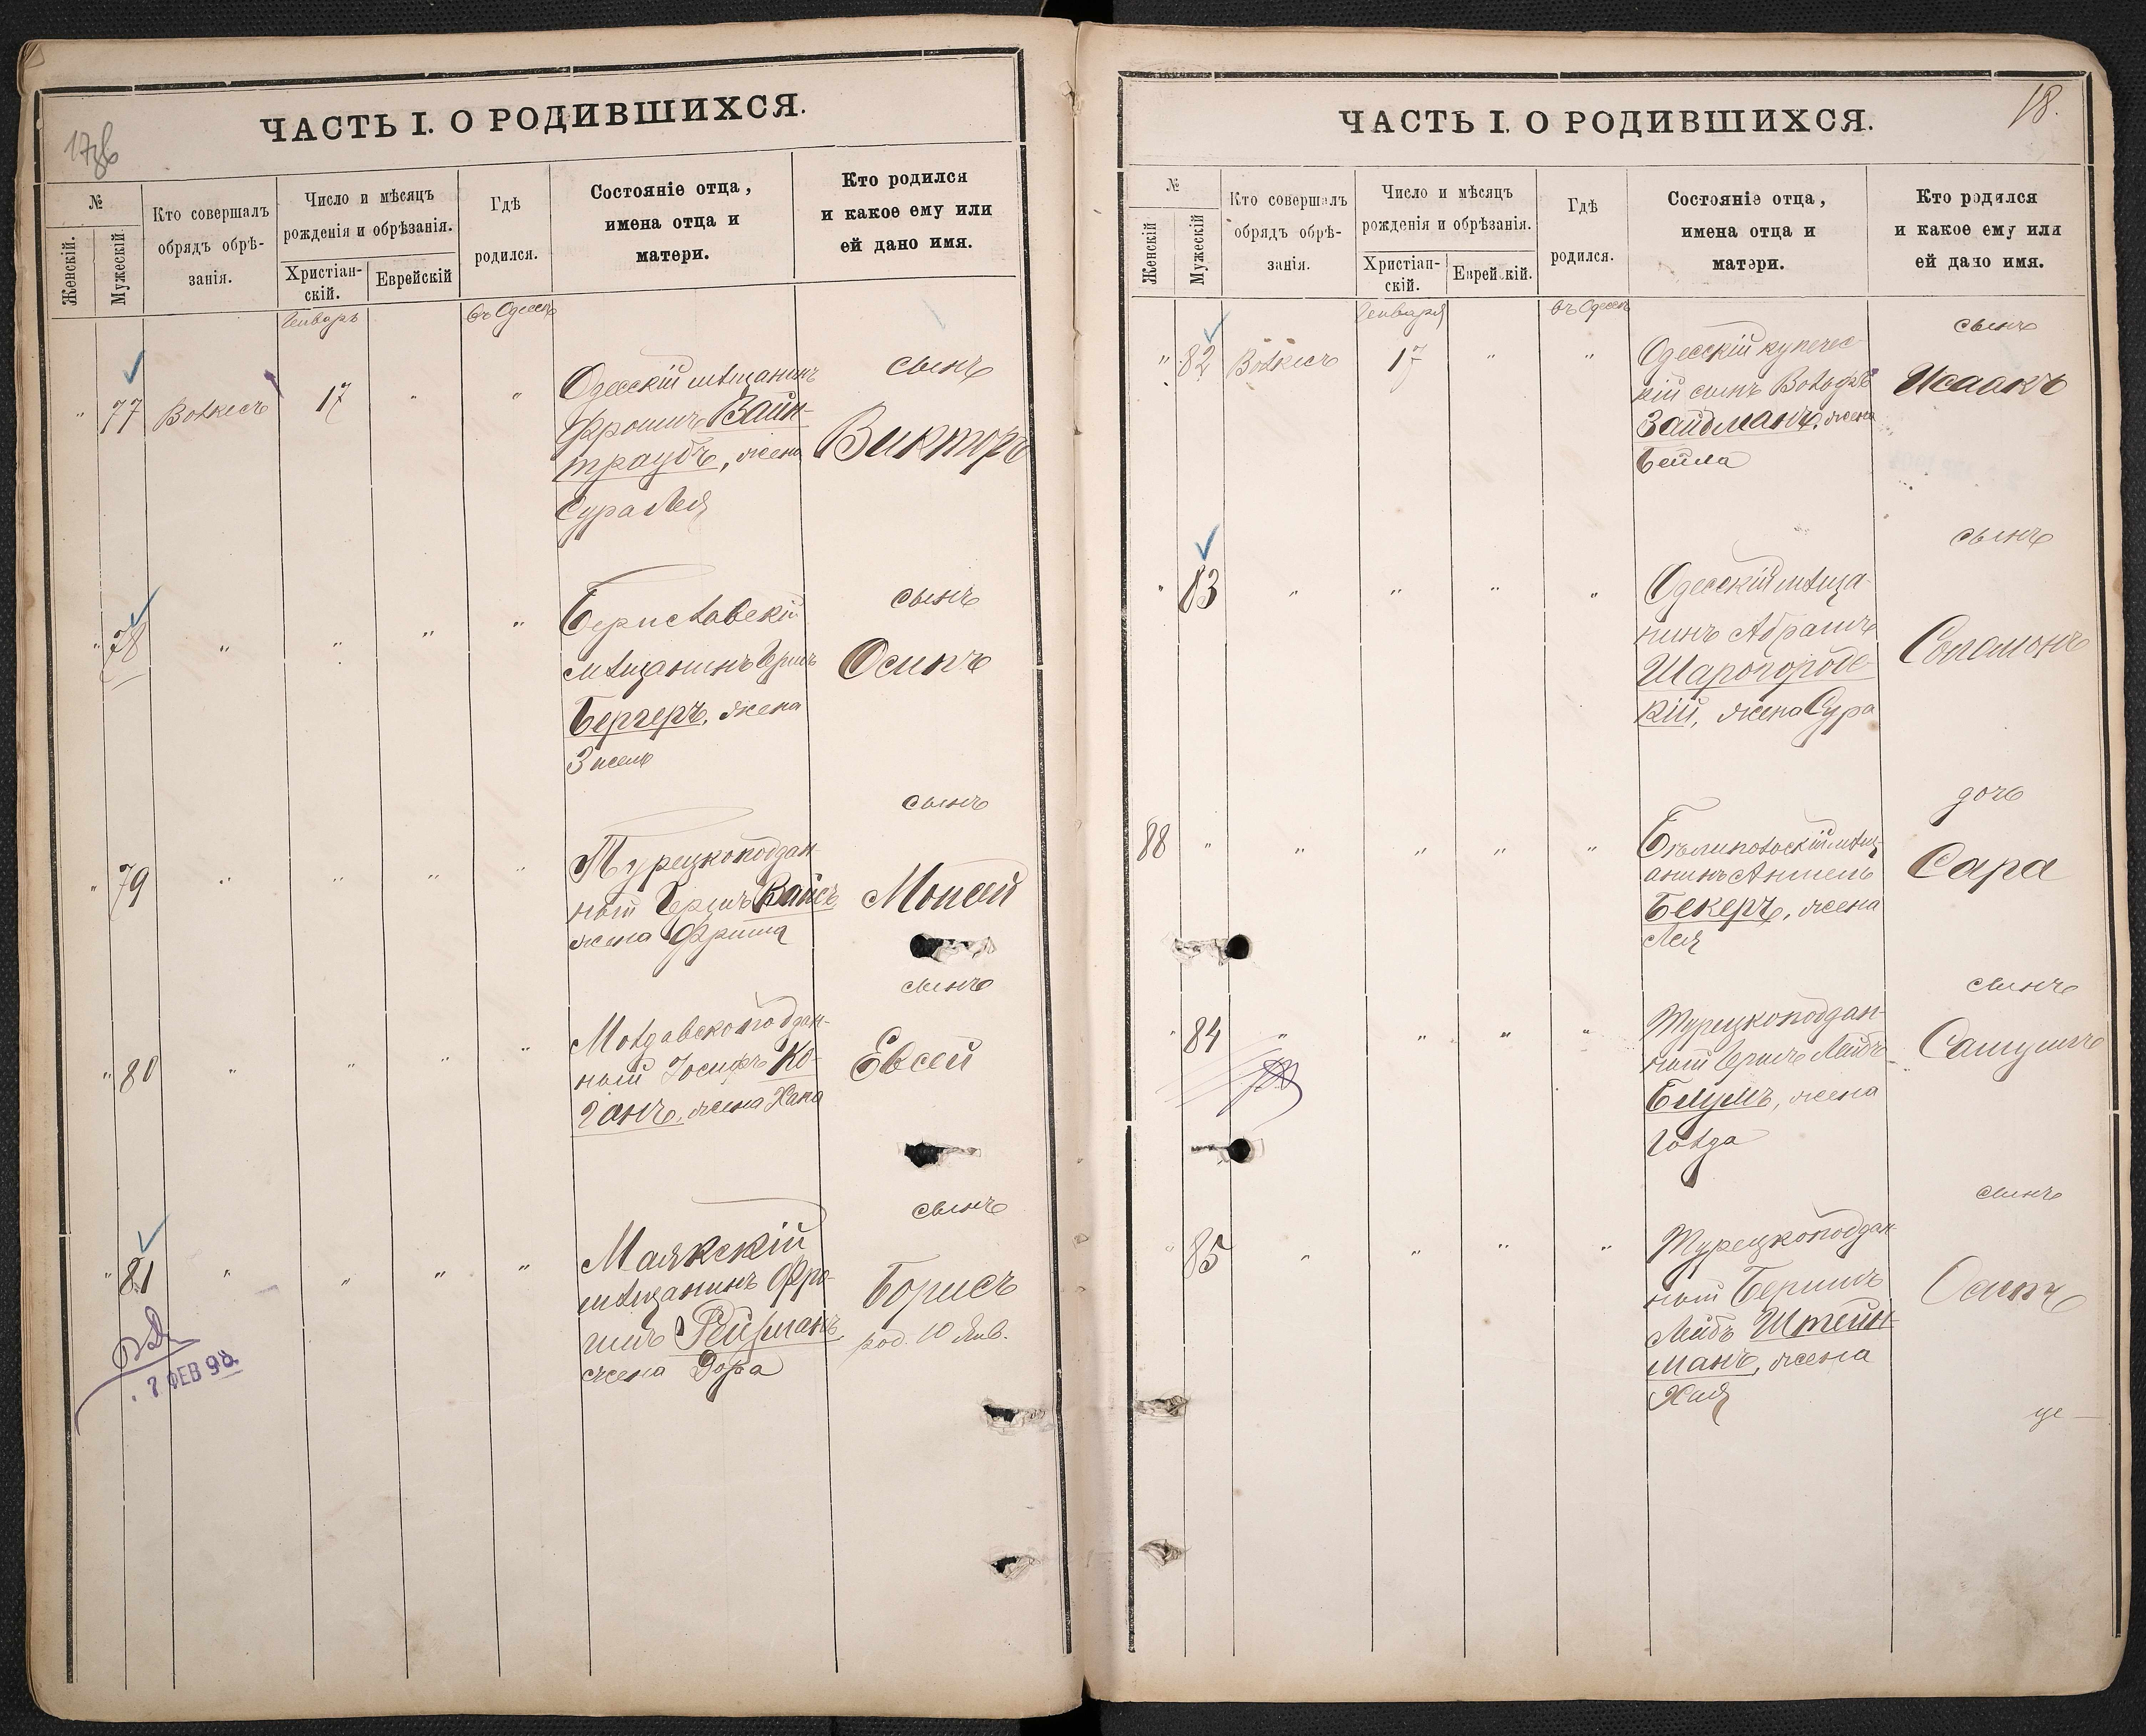 17об
ЧАСТЬ I. О РОДИВШИХСЯ.
№
Женскій.
Мужескій
Кто совершалъ
обрядъ обрѣ-
занія.
Число и мѣсяцъ
рожденія и обрѣзанія.
Христіан-
скій.
Еврейскій
Гдѣ
родился.
Состояніе отца,
имена отца и
матери.
Кто родился
и какое ему или
ей дано имя.
Январь
въ Одессѣ
" 77 17 " "
Одесскій мѣщанинъ
Фроимъ Вайн-
траубъ, жена
Сура Лея
сынъ
Викторъ
" 78 " " " "
Бериславскій
мѣщанинъ Гершъ
Бергеръ, жена
Зисель
сынъ
Осипъ
" 79 " " " "
Турецкоподдан
ный Гершъ Вайсъ
жена Фрима
сынъ
Моисей
" 80 " " " "
Молдавскоподдан-
ный Іосифъ Ко-
ганъ, жена Хана
сынъ
Евсей
" 81 " " " "
Маякскій
мѣщанинъ Фро-
имъ Рейзманъ,
жена Дора
сынъ
Борисъ
род. 10 Янв.
7 ФЕВ 98
18.
ЧАСТЬ I. О РОДИВШИХСЯ.
№
Женскій
Мужескій
Кто совершалъ
обрядъ обрѣ-
занія.
Число и мѣсяцъ
рожденія и обрѣзанія.
Христіан-
скій.
Еврейскій.
Гдѣ
родился.
Состояніе отца,
имена отца и
матери.
Кто родился
и какое ему или
ей дано имя.
Января
въ Одессѣ
" 82 17 " "
Одесскій купечес-
кій сынъ Вольфъ
Зайдманъ, жена
Бейла
сынъ
Исаакъ
" 83 " " " "
Одесскій мѣща-
нинъ Абрамъ
Шарогородс-
кій, жена Сура
сынъ
Соломонъ
88 " " " " "
мѣщ
анинъ Аншель
Бекеръ, жена
Лея
дочь
Сара
" 84 " " " "
Турецкоподдан-
ный Гершъ Лейбъ
Блумъ, жена
Голда
сынъ
Самуилъ
" 85 " " " "
Турецкоподдан
ный Беришъ
Лейбъ Штейн-
манъ, жена
Хая
сынъ
Осипъ